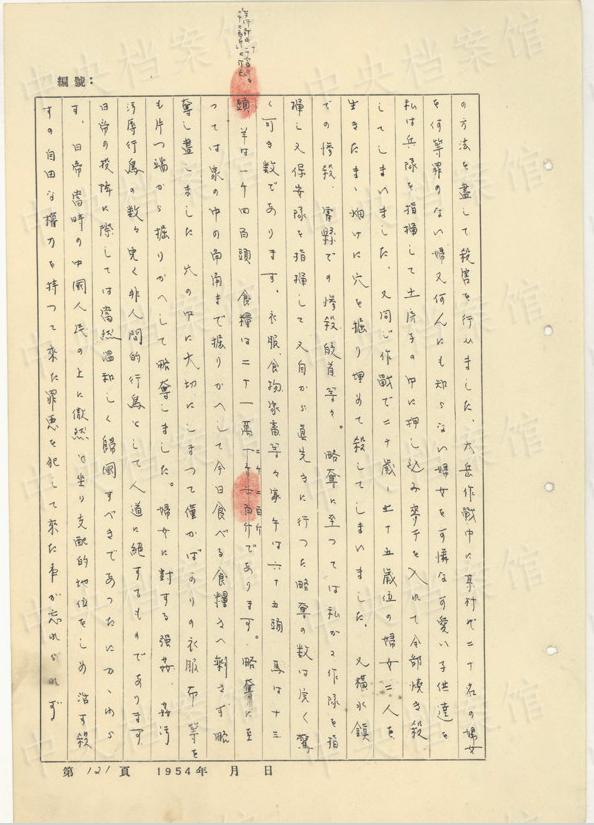 編號：
の方法を盡して殺害を行ひました。太岳作戦中に某村で二十名の婦女
を何等罪のない婦又何んにも知らない婦女を可憐な可愛い子供達を
私は兵隊を指揮して土房子の中に押し込み麥干を入れて全部焼き殺
してしまいました。又同じ作戦で二十歳―二十五歳位の婦女二人を
生きたまゝ畑けに穴を掘り埋めて殺してしまいました。又横水鎮
での惨殺、霍縣での惨殺、等々。略奪に至つては私が工作隊を指
揮し又保安隊を指揮して又自から真先きに行つた略奪の数は実に驚
く可き数であります。衣服、食物、家畜等々家牛は六十五頭 馬は十三
頭 羊は一千四百頭 食糧は二十一萬二千二百斤であります。略奪に至
つては家の中の南角まで掘りかへして今日食べる食糧さへ剰さず略
奪し盡しました 穴の中に大切にしまつて僅かばかりの衣服布等を
も片つ端から掘りかへして略奪しました。婦女に対する強姦、姦淫
汚辱行為の数々実く非人間的行為として人道に絶するものであります
日帝の投降に際しては當然温和しく歸國すべきであつたにかゝわら
ず、日帝當時の中國人民の上に傲然と坐り支配的地位をしめ治す殺
すの自由な権力を持つて来た罪悪を犯して来た事が忘れられず
第 121 頁 1954年 月 日
中央档案馆